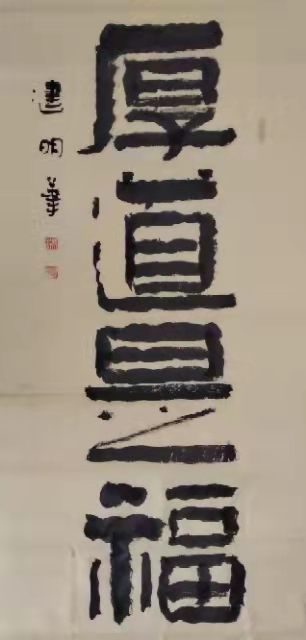 厚道是福
建明筆